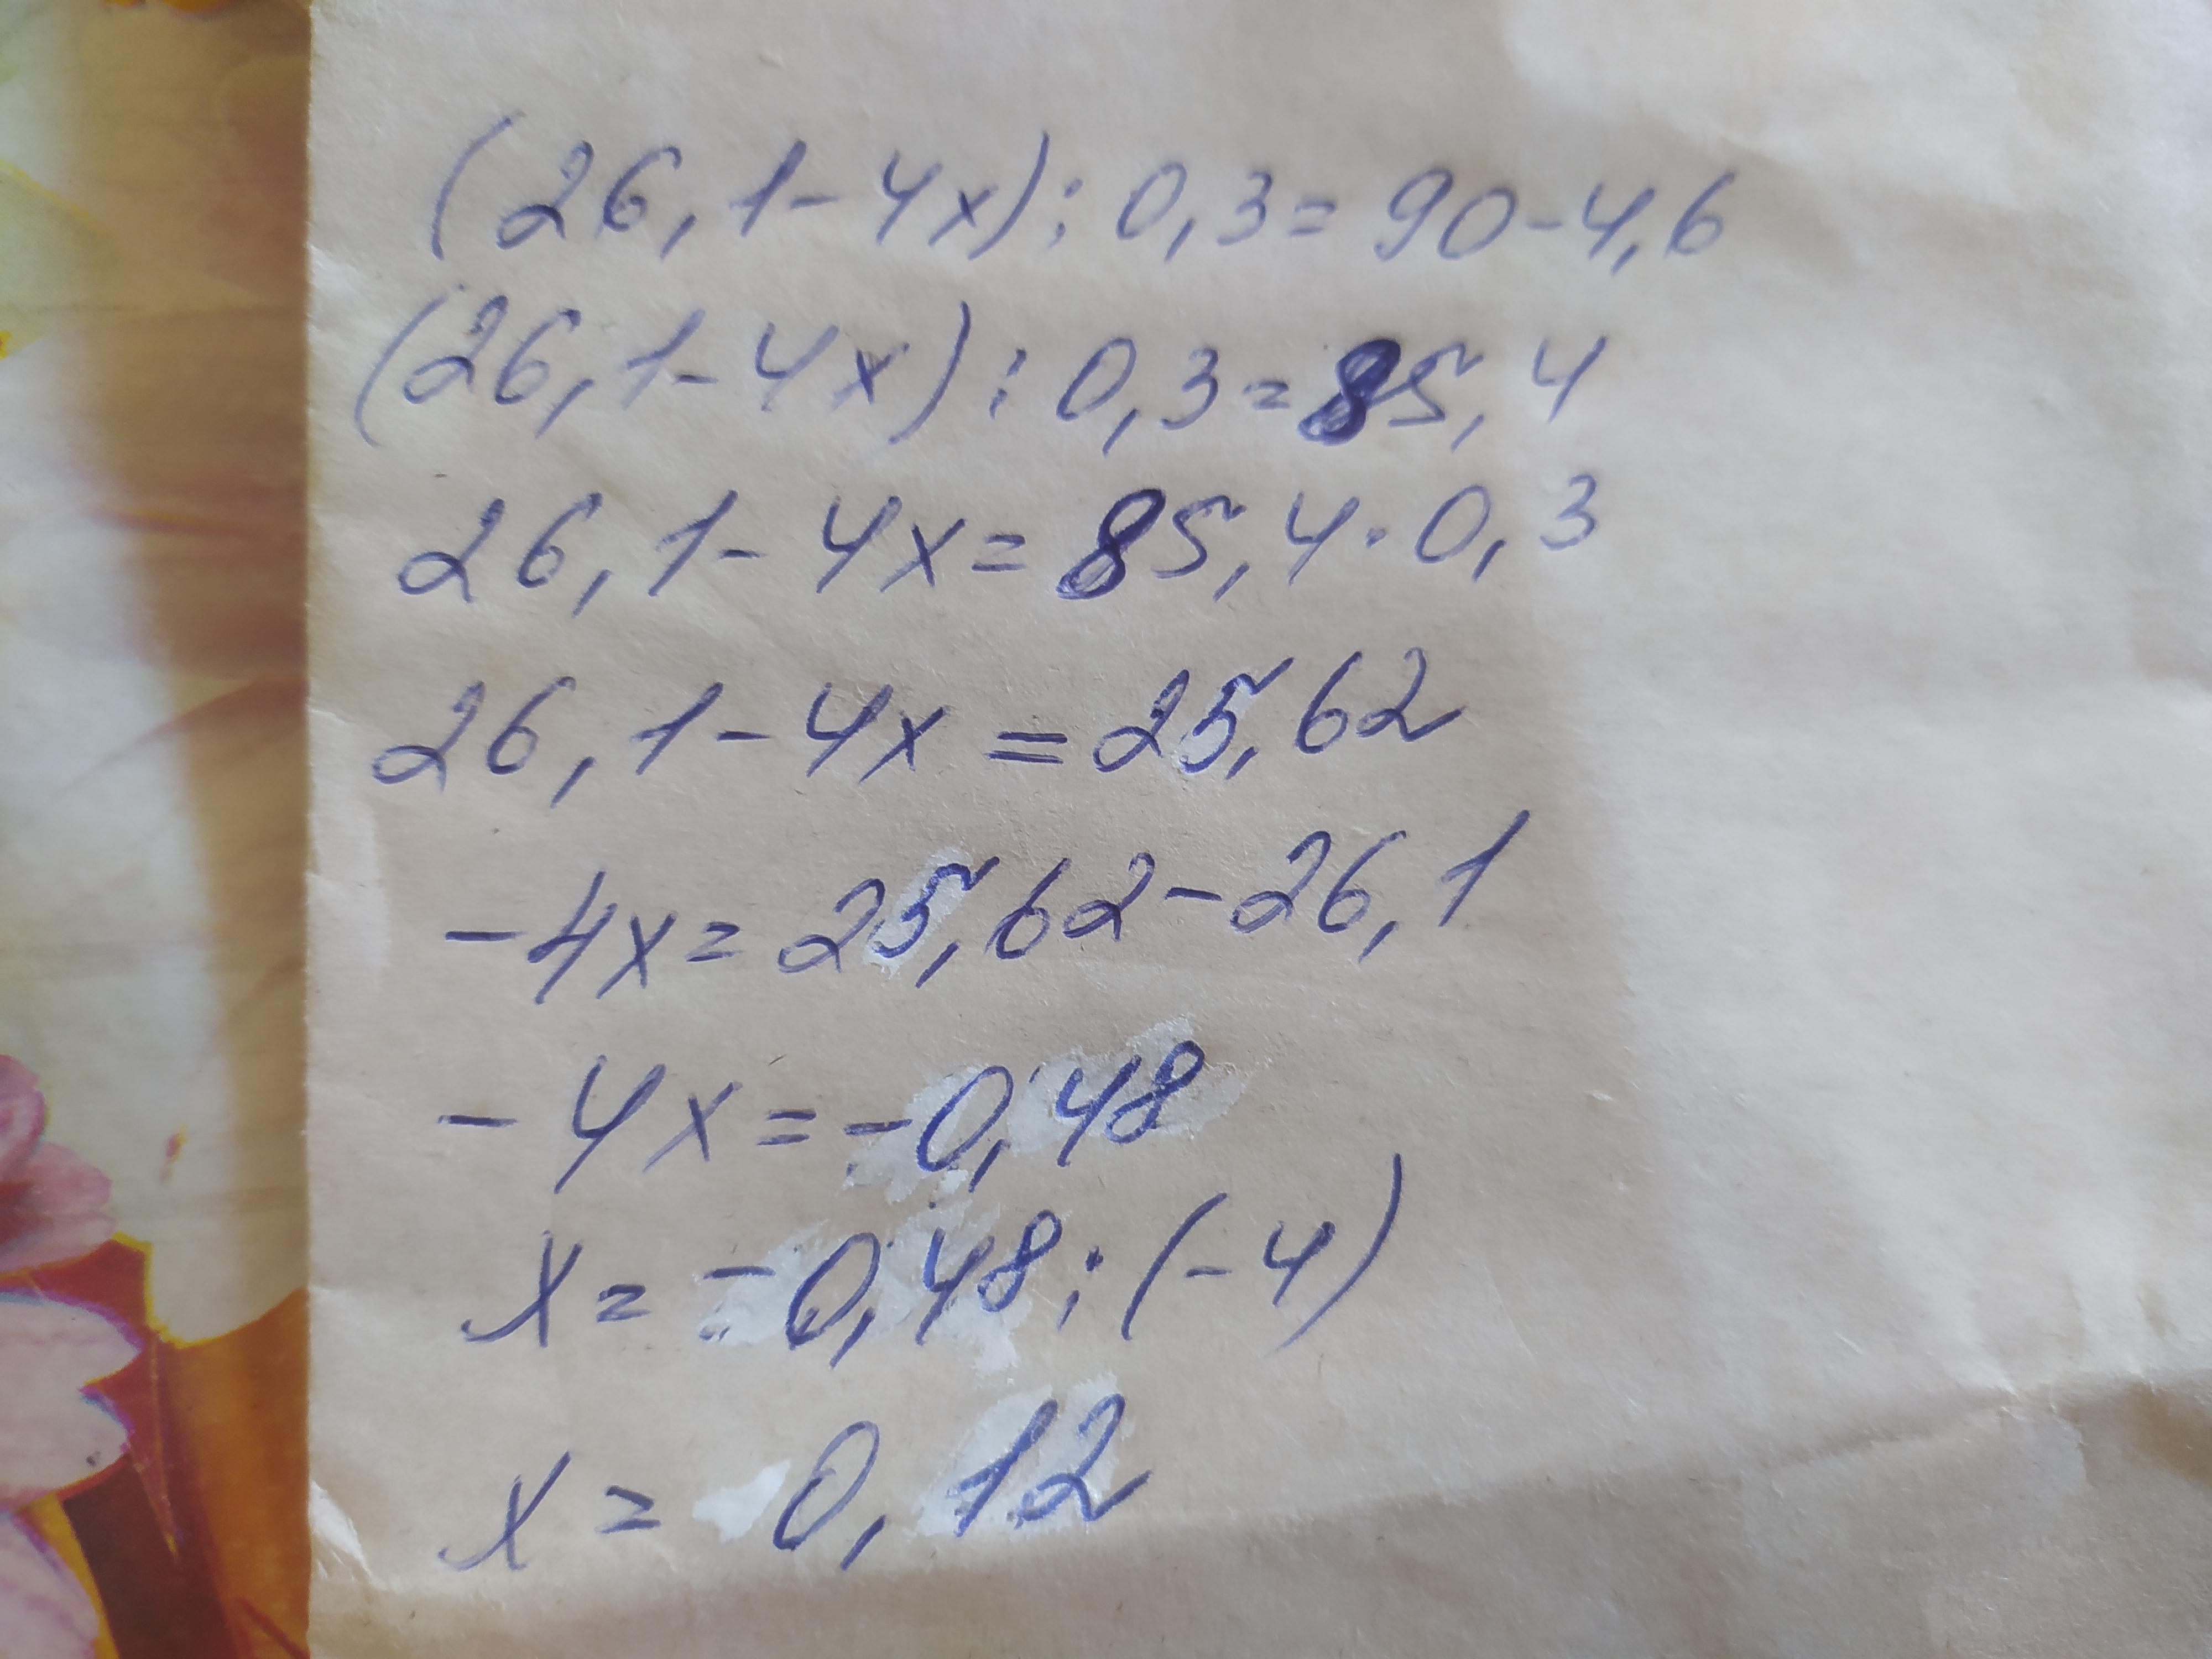 (26,1-4x):0,3=90-4,6
(26,1-4x):0,3=85,4
26,1-4x=85,4·0,3
26,1-4x=25,62
-4x=25,62-26,1
-4x=-0,48
x=-0,48:(-4)
x=0,12